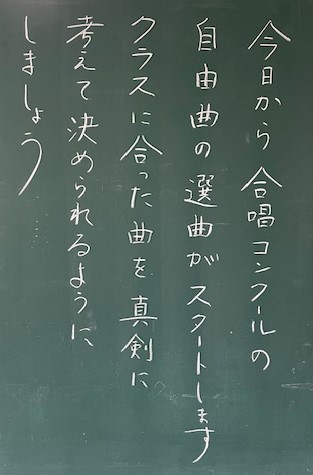 今日から合唱コンクールの
自由曲の選曲がスタートします
クラスに合った曲を真剣に
考えて決められるように
しましょう